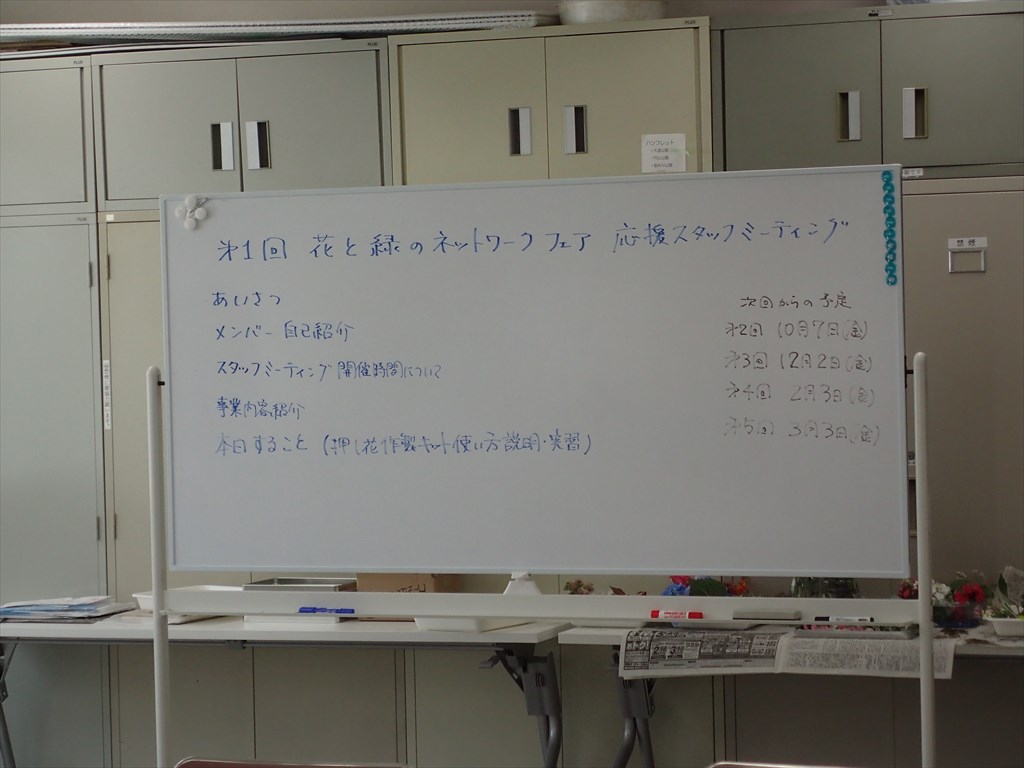 第1回 花と緑のネットワークフェア 応援スタッフミーティング
あいさつ
メンバー自己紹介
スタッフミーティング開催時間について
事業内容紹介
本日すること (押し花作製キット使い方説明・実習)
次回からの予定
第2回 10月7日(金)
第3回 12月2日(金)
第4回 2月3日(金)
第5回 3月3日(金)
パンフレット
禁煙
PLUS